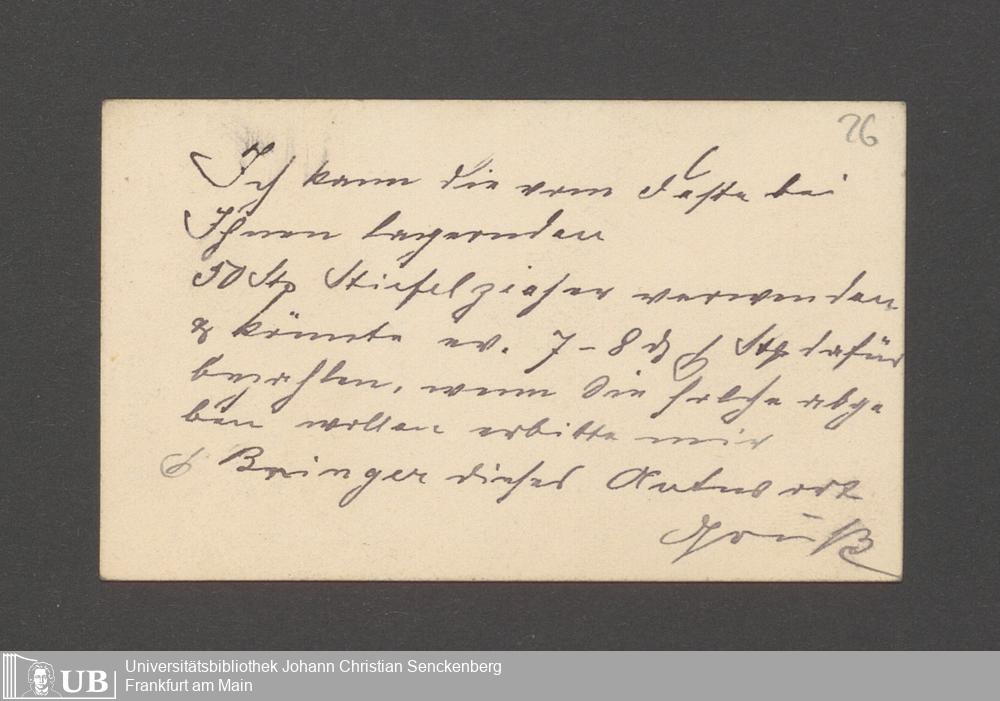 26
Ich kann die vom Feste bei
Ihnen lagernden
50 Stp Stiefelzieher verwenden
& könnte ev. 7-8 ₰ p Stp dafür
bezahlen, wenn Sie solche abge
ben wollen erbitte mir
p Bringer dieses Antwort
Gruß
UB
Universitätsbibliothek Johann Christian Senckenberg
Frankfurt am Main